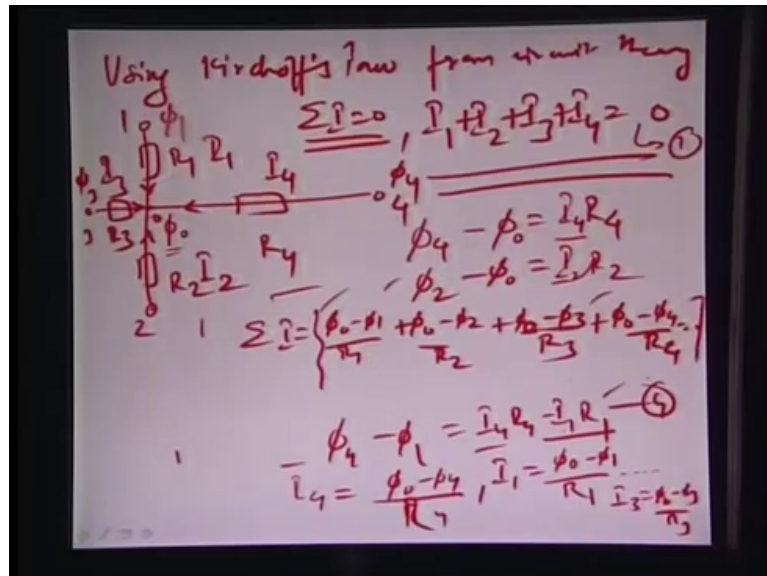 Using Kirchoff's law from circuit theory
ΣI=0, I₁+I₂+I₃+I₄=0
↳①
1 ϕ₁
R₁ I₁
I₄
ϕ₄
4
ϕ₃ I₃
3 R₃
ϕ₀
R₄
ϕ₄ - ϕ₀ = I₄R₄
R₂ I₂
ϕ₂ - ϕ₀ = I₂R₂
2 1
ΣI = {(ϕ₀-ϕ₁)/R₁ + (ϕ₀-ϕ₂)/R₂ + (ϕ₀-ϕ₃)/R₃ + (ϕ₀-ϕ₄)/R₄ ..}
ϕ₄ - ϕ₁ = I₄R₄ - I₁R₁ —⑤
I₄ = (ϕ₀-ϕ₄)/R₄, I₁ = (ϕ₀-ϕ₁)/R₁ .... I₃ = (ϕ₀-ϕ₃)/R₃